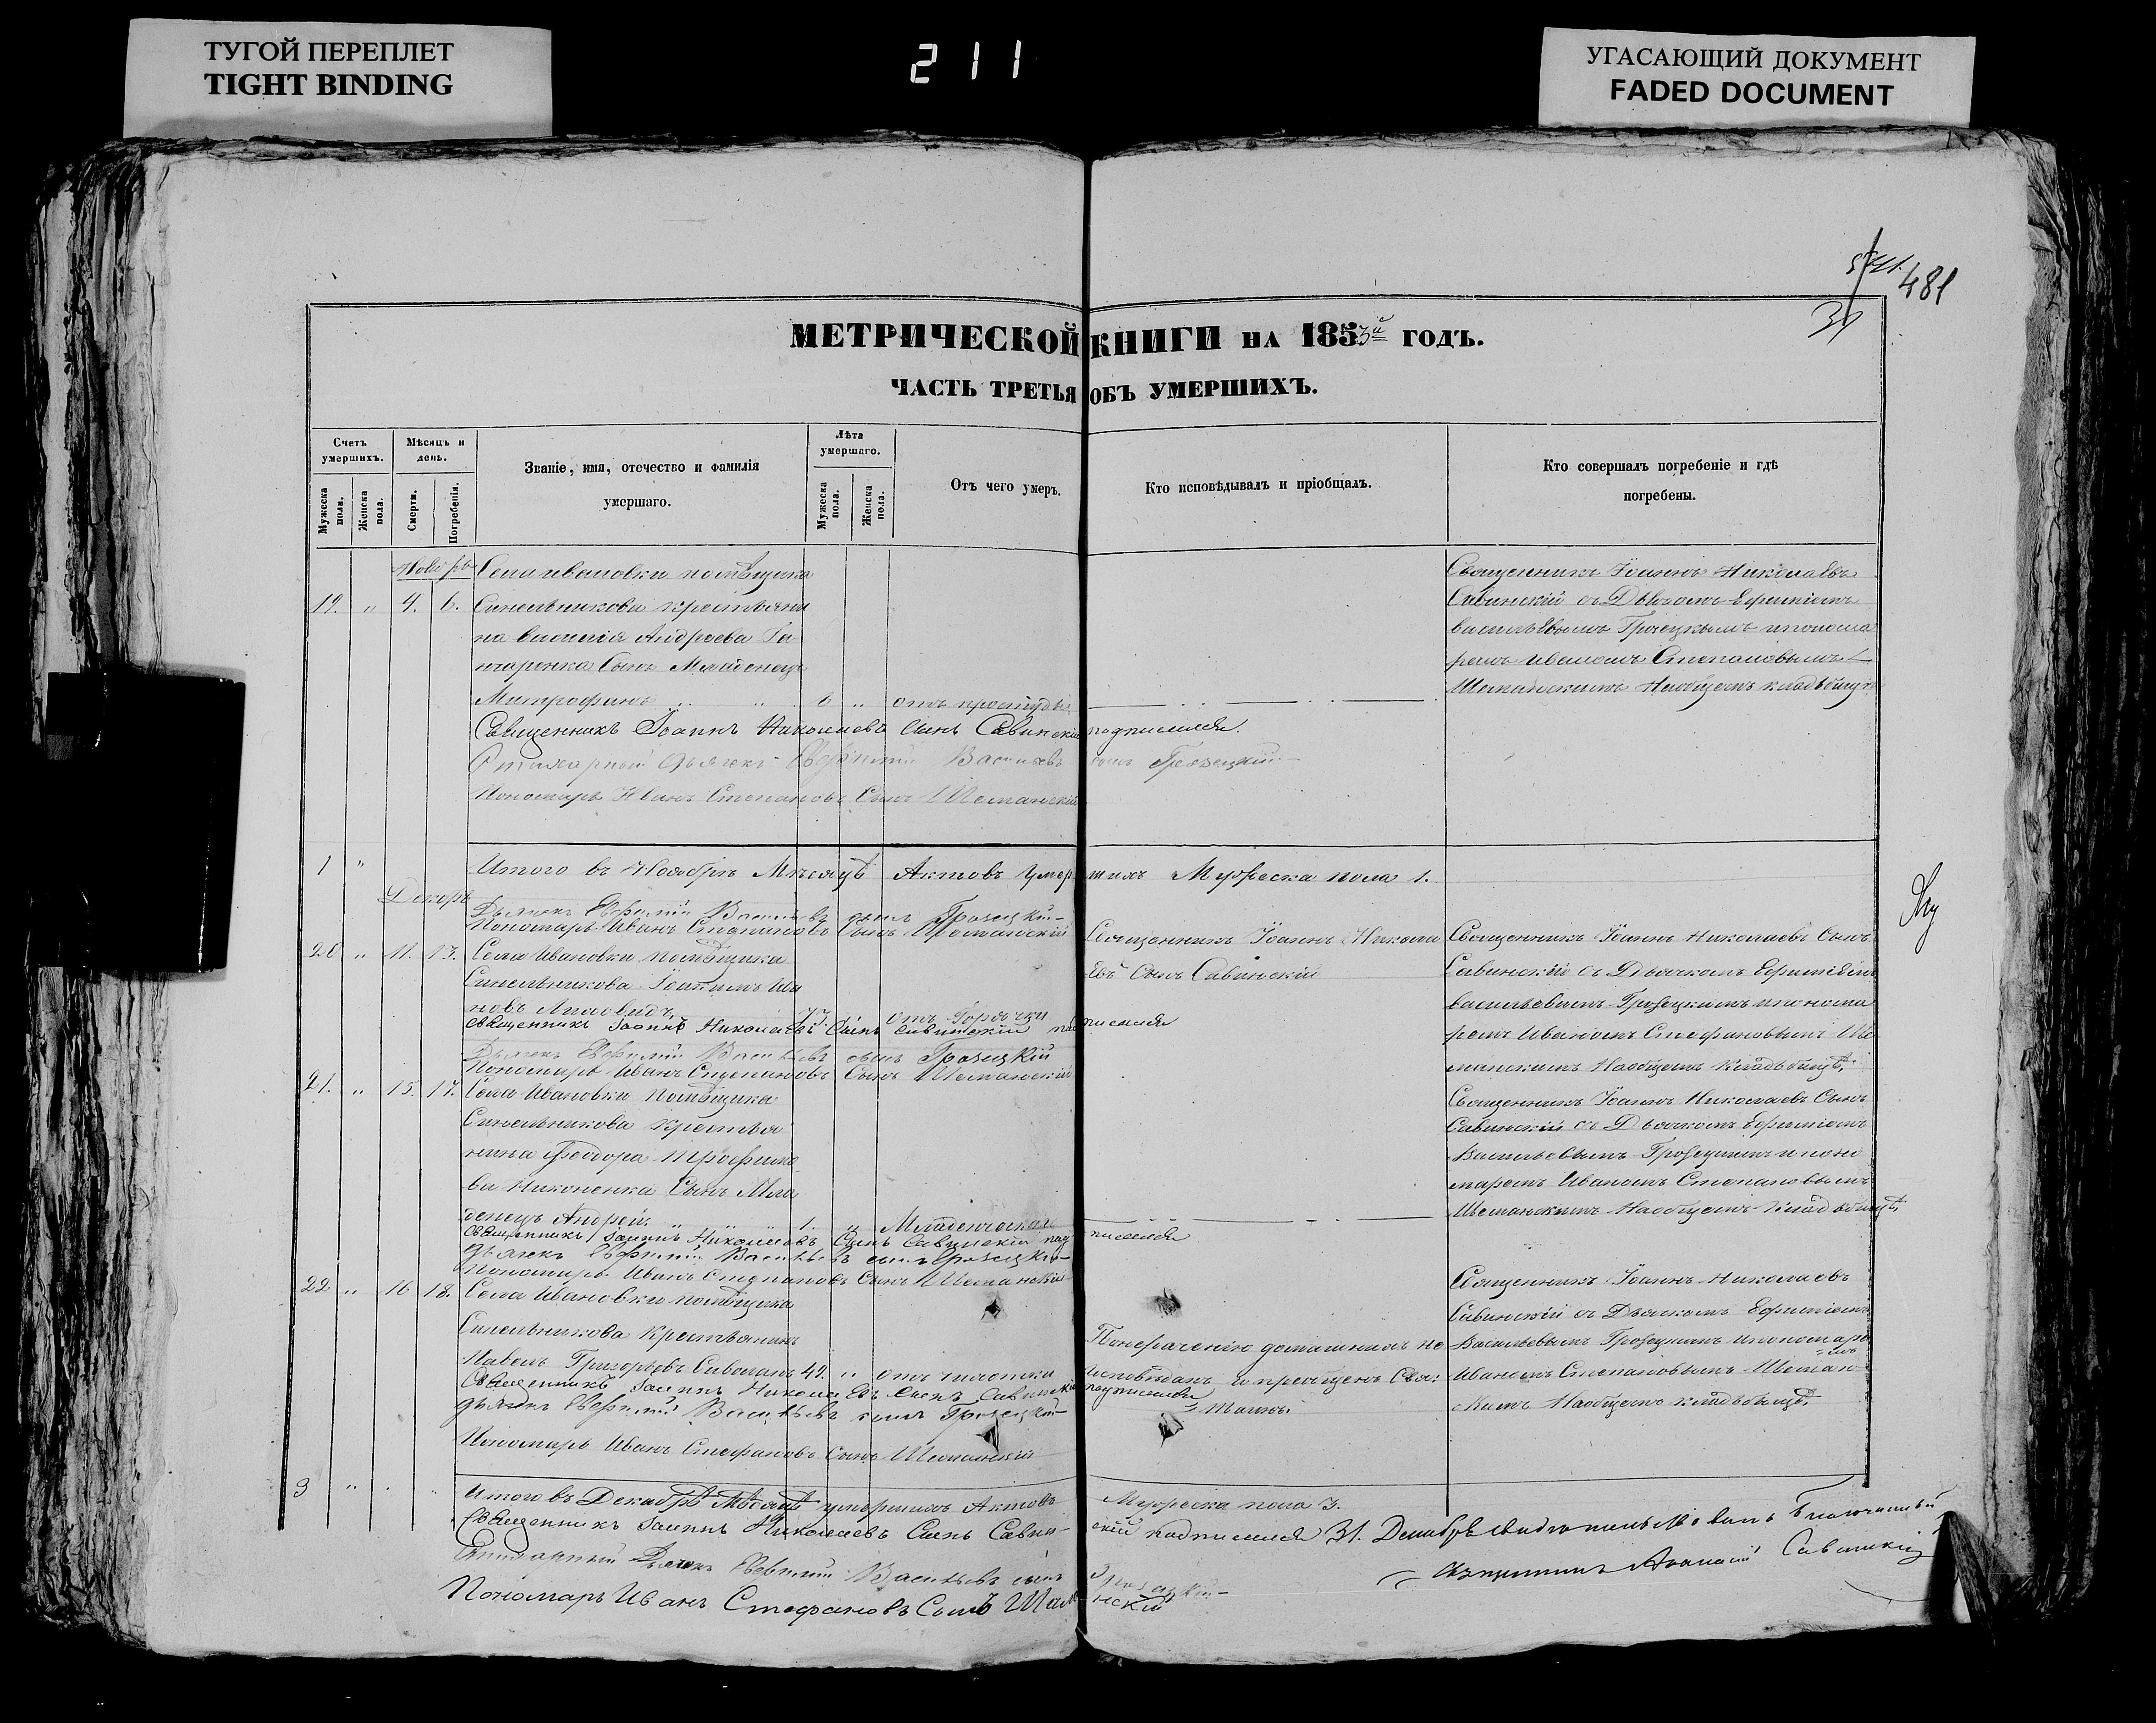 ТУГОЙ ПЕРЕПЛЕТ
TIGHT BINDING
211
УГАСАЮЩИЙ ДОКУМЕНТ
FADED DOCUMENT
481
31
МЕТРИЧЕСКОЙ КНИГИ НА 1853й ГОДЪ.
ЧАСТЬ ТРЕТЬЯ ОБЪ УМЕРШИХЪ.
Счетъ умершихъ.
Мужеска пола.
Женска пола.
Мѣсяцъ и день.
Смерти.
Погребенія.
Званіе, имя, отечество и фамилія
умершаго.
Лѣта умершаго.
Мужеска пола.
Женска пола.
Отъ чего умеръ.
Кто исповѣдывалъ и пріобщалъ.
Кто совершалъ погребеніе и гдѣ
погребены.
Села Ивановки помѣщика
19. " 4. 6. Синельникова крестьяни
на Василія Андреева Га
нчаренка Сынъ Младенецъ
Митрофанъ 6 " отъ простуды
Священникъ Іоаннъ Николаевъ
Савинскій съ Дьячкомъ Ефиміемъ
Васильевымъ Грозецкимъ и понома
ремъ Иваномъ Степановымъ
Шеманскимъ На общемъ кладбищѣ
Священникъ Іоаннъ Николаевъ Сынъ Савинскій подписался.
Дьячекъ Евфимій Васильевъ сынъ Грозецкій
Пономарь Иванъ Степановъ Сынъ Шеманскій
1 " Итого въ Ноябрѣ Мѣсяцѣ Актовъ умершихъ Мужеска пола 1.
Декабрь
Дьячекъ Евфимій Васильевъ сынъ Грозецкій
Пономарь Иванъ Степановъ Сынъ Шеманскій
20 " 11. 13. Села Ивановки помѣщика
Синельникова Іоакимъ Ива
новъ 73. отъ Горячки
Священникъ Іоаннъ Никола
евъ Сынъ Савинскій
Священникъ Іоаннъ Николаевъ Сынъ
Савинскій съ Дьячкомъ Ефиміемъ
Васильевымъ Грозецкимъ и понома
ремъ Иваномъ Стефановымъ Ше
манскимъ На общемъ Кладбищѣ.
Священникъ Іоаннъ Николаевъ Сынъ Савинскій подписался
Дьячекъ Евфимій Васильевъ сынъ Грозецкій
Пономарь Иванъ Степановъ Сынъ Шеманскій
21. " 15. 17. Села Ивановки Помѣщика
Синельникова Крестья
нина Феодора Трофимо
ва Никоненка Сынъ Мла
денецъ Андрей. 1. " Младенческой
Священникъ Іоаннъ Николаевъ Сынъ
Савинскій съ Дьячкомъ Ефиміемъ
Васильевымъ Грозецкимъ и поно
маремъ Иваномъ Степановымъ
Шеманскимъ На общемъ Кладбищѣ.
Священникъ Іоаннъ Николаевъ Сынъ Савинскій подписался
Дьячекъ Евфимій Васильевъ сынъ Грозецкій
Пономарь Иванъ Степановъ Сынъ Шеманскій
22 " 16 18. Села Ивановки помѣщика
Синельникова Крестьянинъ
Павелъ Григорьевъ 49. " отъ чахотки
По нераченію домашнихъ не
исповѣданъ и пріобщенъ Свя:
Таинъ.
Священникъ Іоаннъ Николаевъ
Савинскій съ Дьячкомъ Ефиміемъ
Васильевымъ Грозецкимъ и пономаре
мъ
Иваномъ Степановымъ Шеман
скимъ На общемъ кладбищѣ.
Священникъ Іоаннъ Николаевъ Сынъ Савинскій подписался
Дьячекъ Евфимій Васильевъ сынъ Грозецкій
Пономарь Иванъ Стефановъ Сынъ Шеманскій
3 " Итого въ Декабрѣ Мѣсяцѣ умершихъ Актовъ Мужеска пола 3.
Священникъ Іоаннъ Николаевъ Сынъ Савинскій подписался 31. Декабря свидѣтельствовалъ Благочинный
Дьячекъ Евфимій Васильевъ сынъ Грозецкій
Священникъ Савинскій
Пономарь Иванъ Стефановъ Сынъ Шеманскій